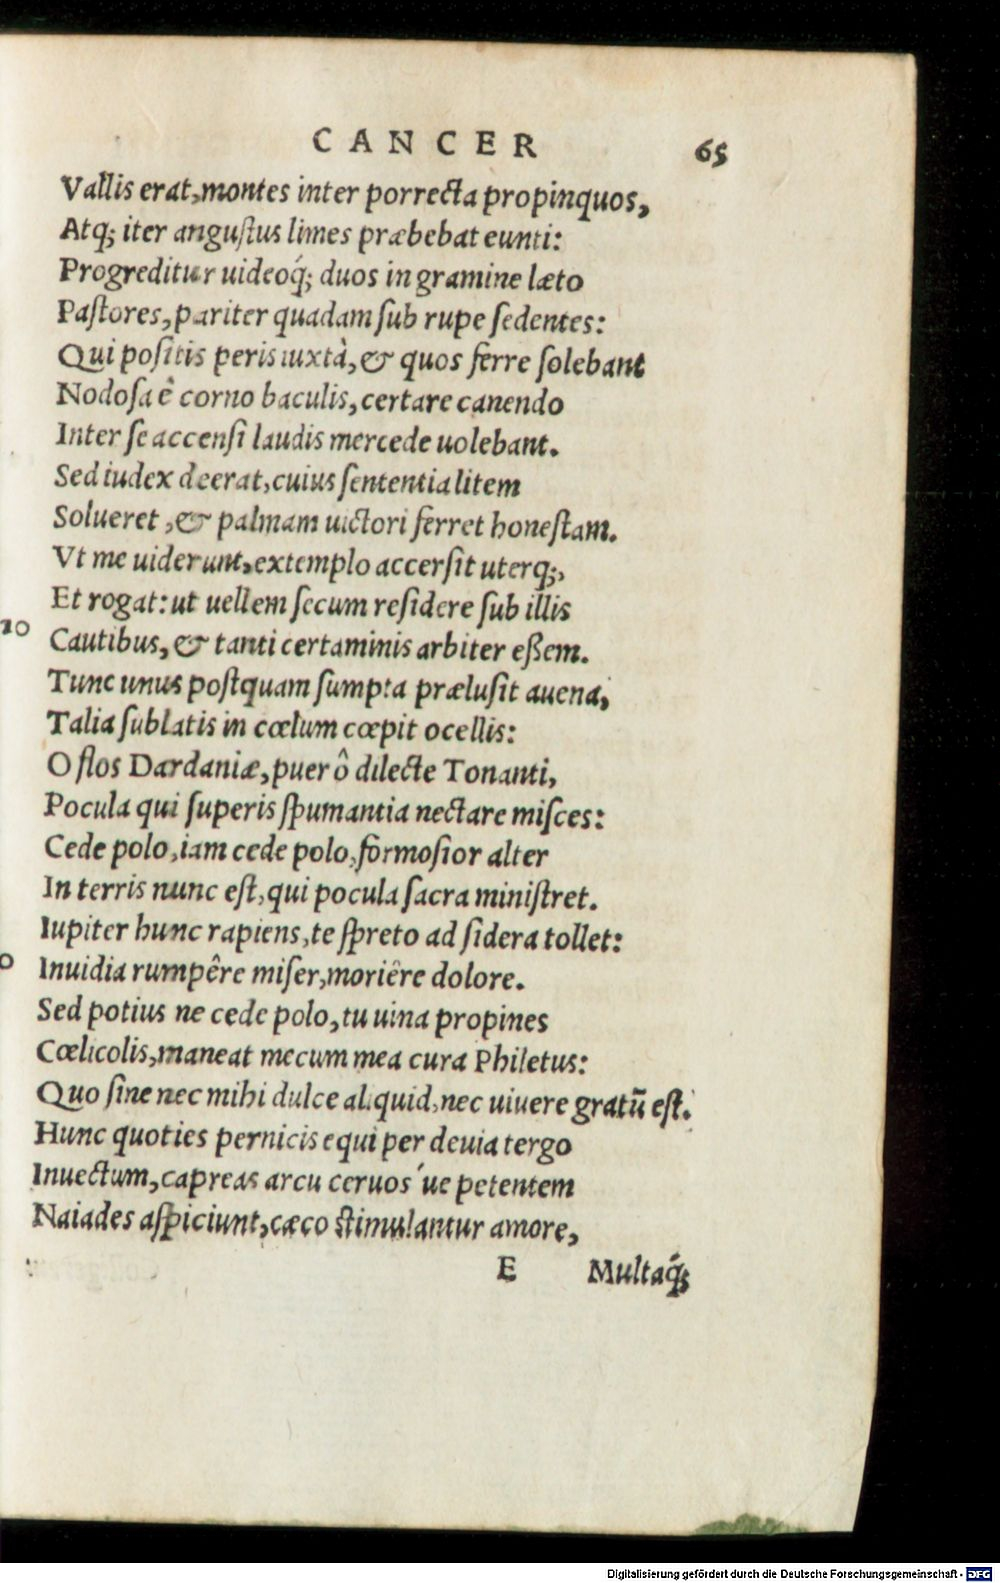 CANCER 65
Vallis erat, montes inter porrecta propinquos,
Atq; iter angustus limes præbebat eunti:
Progreditur uideoq́; duos in gramine læto
Pastores, pariter quadam sub rupe sedentes:
Qui positis peris iuxtà, & quos ferre solebant
Nodosa ê corno baculis, certare canendo
Inter se accensi laudis mercede uolebant.
Sed iudex deerat, cuius sententia litem
Solueret, & palmam uictori ferret honestam.
Vt me uiderunt, extemplo accersit uterq;,
Et rogat: ut uellem secum residere sub illis
10 Cautibus, & tanti certaminis arbiter eßem.
Tunc unus postquam sumpta prælusit auena,
Talia sublatis in cœlum cœpit ocellis:
O flos Dardaniæ, puer ô dilecte Tonanti,
Pocula qui superis spumantia nectare misces:
Cede polo, iam cede polo, formosior alter
In terris nunc est, qui pocula sacra ministret.
Iupiter hunc rapiens, te spreto ad sidera tollet:
0 Inuidia rumpêre miser, moriêre dolore.
Sed potius ne cede polo, tu uina propines
Cœlicolis, maneat mecum mea cura Philetus:
Quo sine nec mihi dulce aliquid, nec uiuere gratū est.
Hunc quoties pernicis equi per deuia tergo
Inuectum, capreas arcu ceruos´ue petentem
Naiades aspiciunt, cæco stimulantur amore,
E Multaq́;
Digitalisierung gefördert durch die Deutsche Forschungsgemeinschaft - DFG